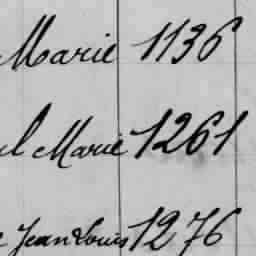 Marie 1136
Marie 1261
Jean Louis 1276